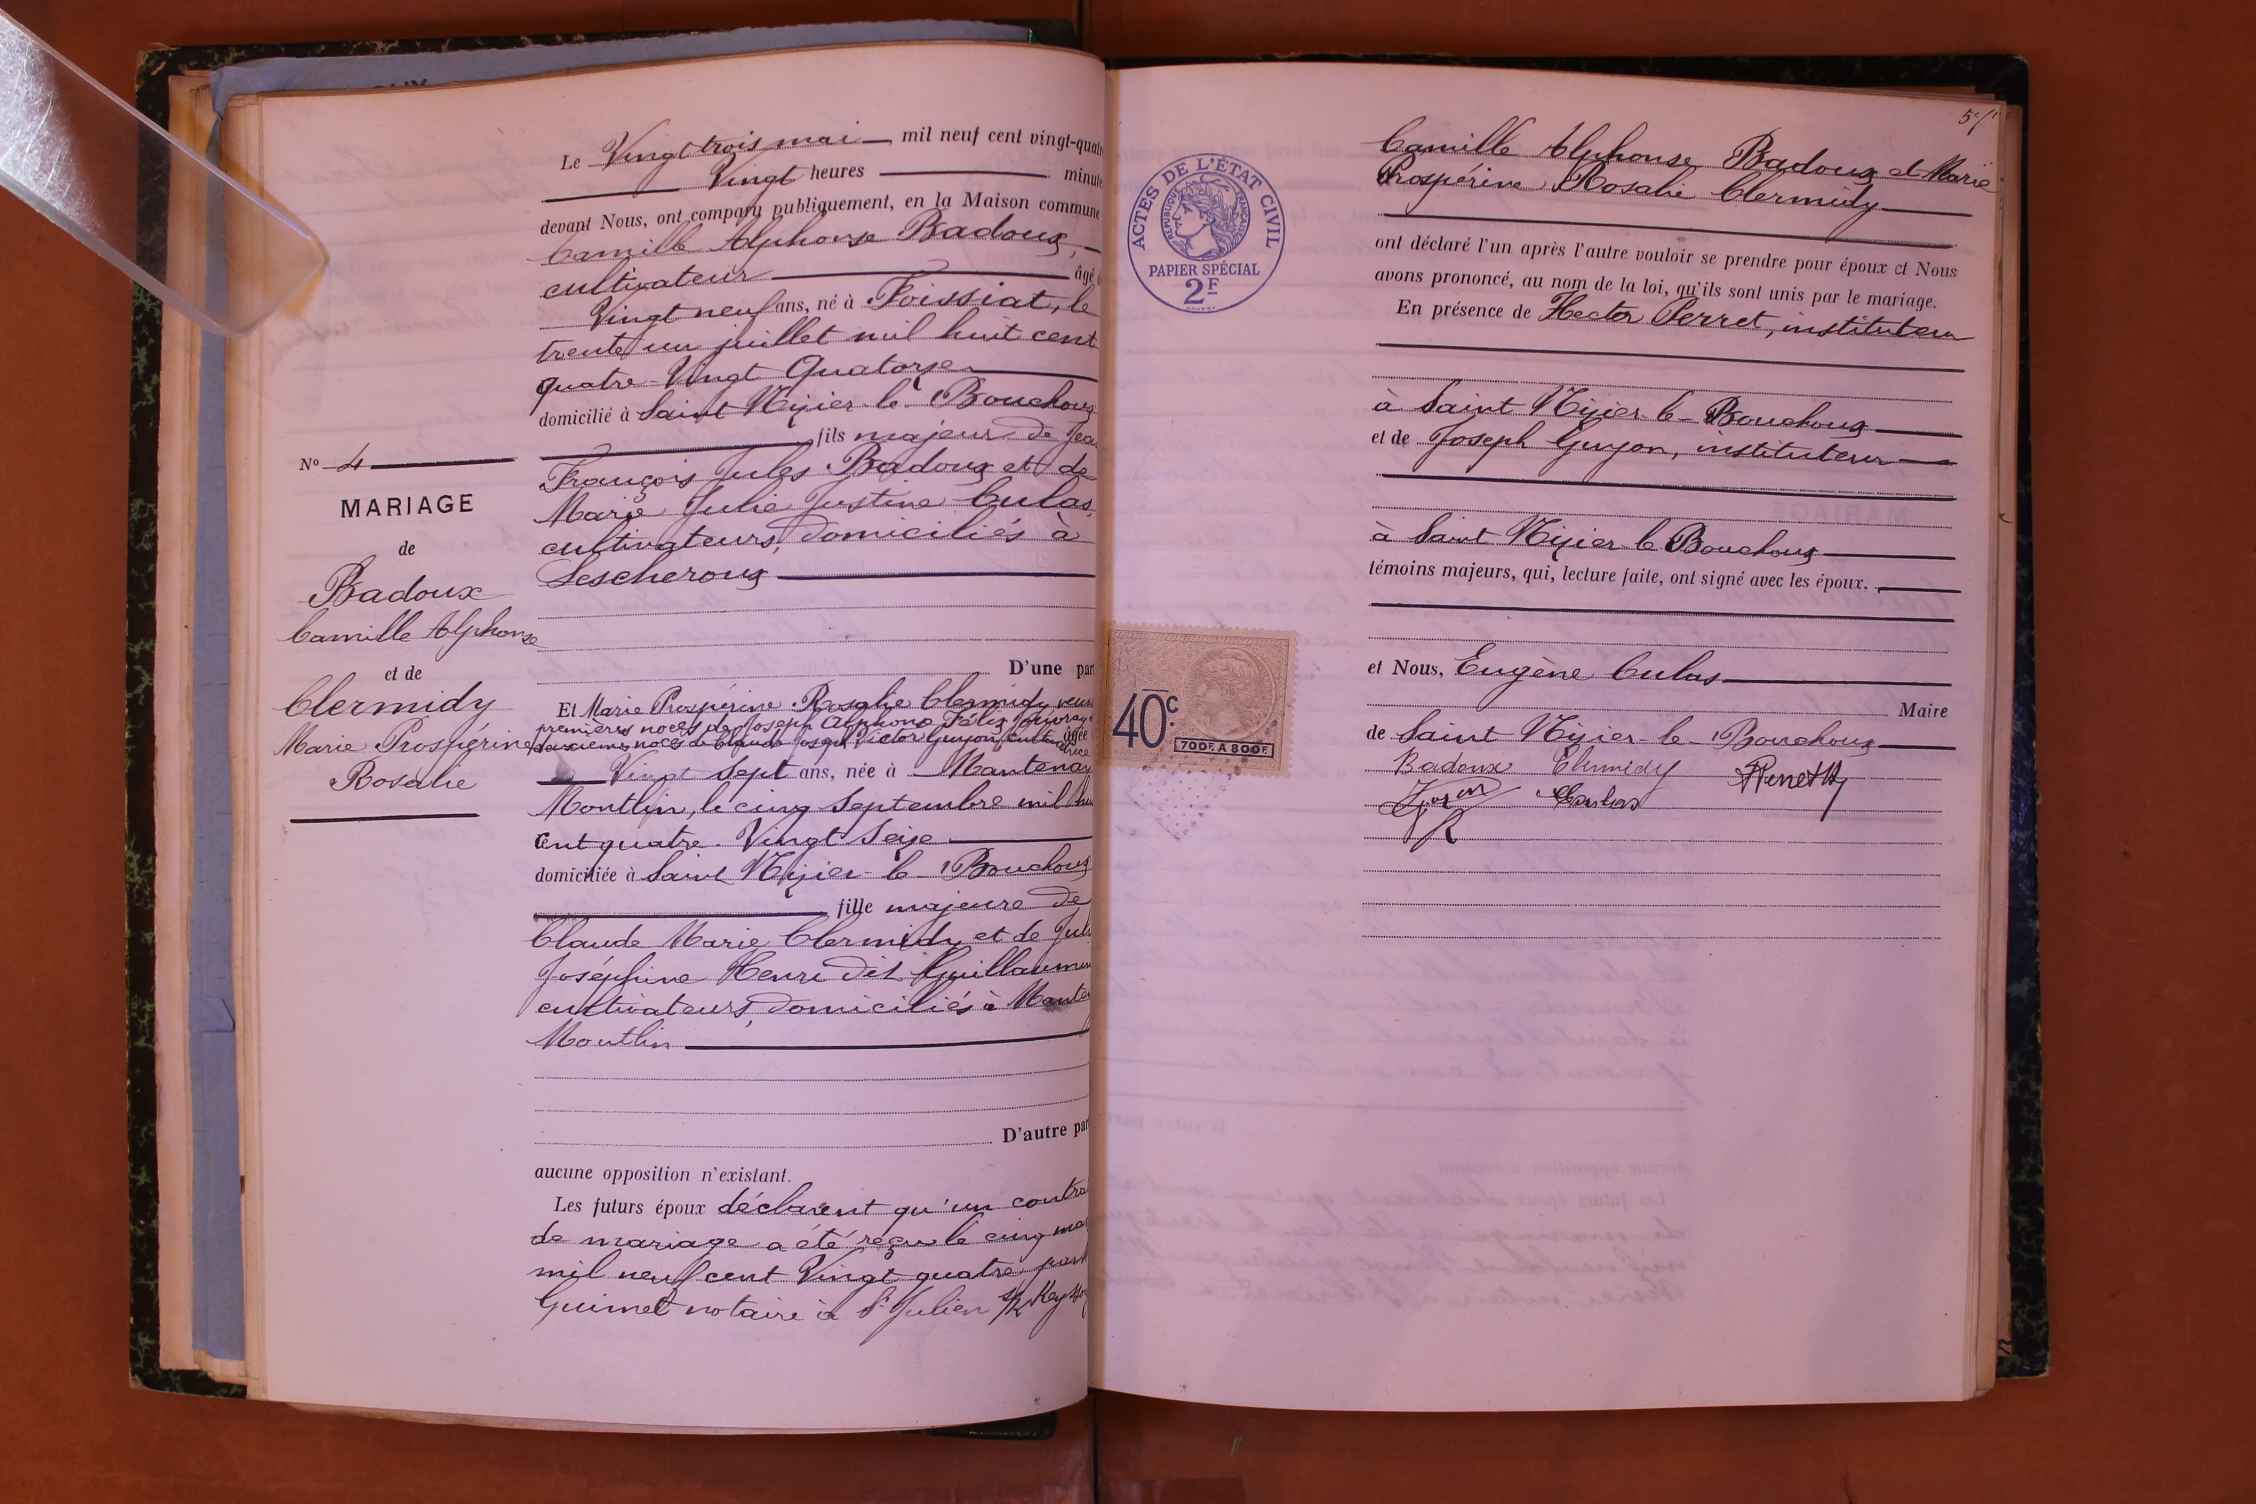 Le Vingt trois mai mil neuf cent vingt-quatr
Vingt heures minute
devant Nous, ont comparu publiquement, en la Maison commune
Camille Alphonse Badoux,
cultivateur âgé
Vingt neuf ans, né à Foissiat, le
trente un juillet mil huit cent
quatre-Vingt Quatorze
domicilié à Saint Nizier-le-Bouchoux
fils majeur de Jea
François Jules Badoux et de
Marie Julie Justine Culas,
cultivateurs, domiciliés à
Lescheroux
D'une par
N° 4
MARIAGE
de
Badoux
Camille Alphonse
et de
Clermidy
Marie Prospérine
Rosalie
Et Marie Prospérine Rosalie Clermidy veuve
premières noces de Joseph Alphonse Félix
deuxièmes noces de Claude Joseph Victor Guyon, cultivatrice âgée
Vingt Sept ans, née à Mantenay
Montlin, le cinq Septembre mil hu
cent quatre-Vingt Seize
domiciliée à Saint Nizier-le-Bouchoux
fille majeure de
Claude Marie Clermidy et de Juli
Joséphine Henri dit Guillaumin
cultivateurs, domiciliés à Mante
Montlin
D'autre par
aucune opposition n'existant.
Les futurs époux déclarent qu'un contra
de mariage a été reçu le cinq ma
mil neuf cent Vingt quatre par
Guimet notaire à St Julien s/R
5
ACTES DE L'ÉTAT CIVIL
RÉPUBLIQUE FRANÇAISE
PAPIER SPÉCIAL
2F
Camille Alphonse Badoux et Marie
Prospérine Rosalie Clermidy
ont déclaré l'un après l'autre vouloir se prendre pour époux et Nous
avons prononcé, au nom de la loi, qu'ils sont unis par le mariage.
En présence de Hector Perret, instituteur
à Saint Nizier-le-Bouchoux
et de Joseph Guyon, instituteur
à Saint Nizier le Bouchoux
témoins majeurs, qui, lecture faite, ont signé avec les époux.
et Nous, Eugène Culas
Maire
de Saint Nizier-le-Bouchoux
Badoux Clermidy Perret H
Guyon Culas
40c.
700F. A 800F.